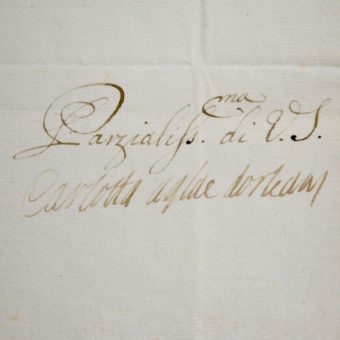 Parzialiss.ma di V.S.
Carlotta aglae dorleans